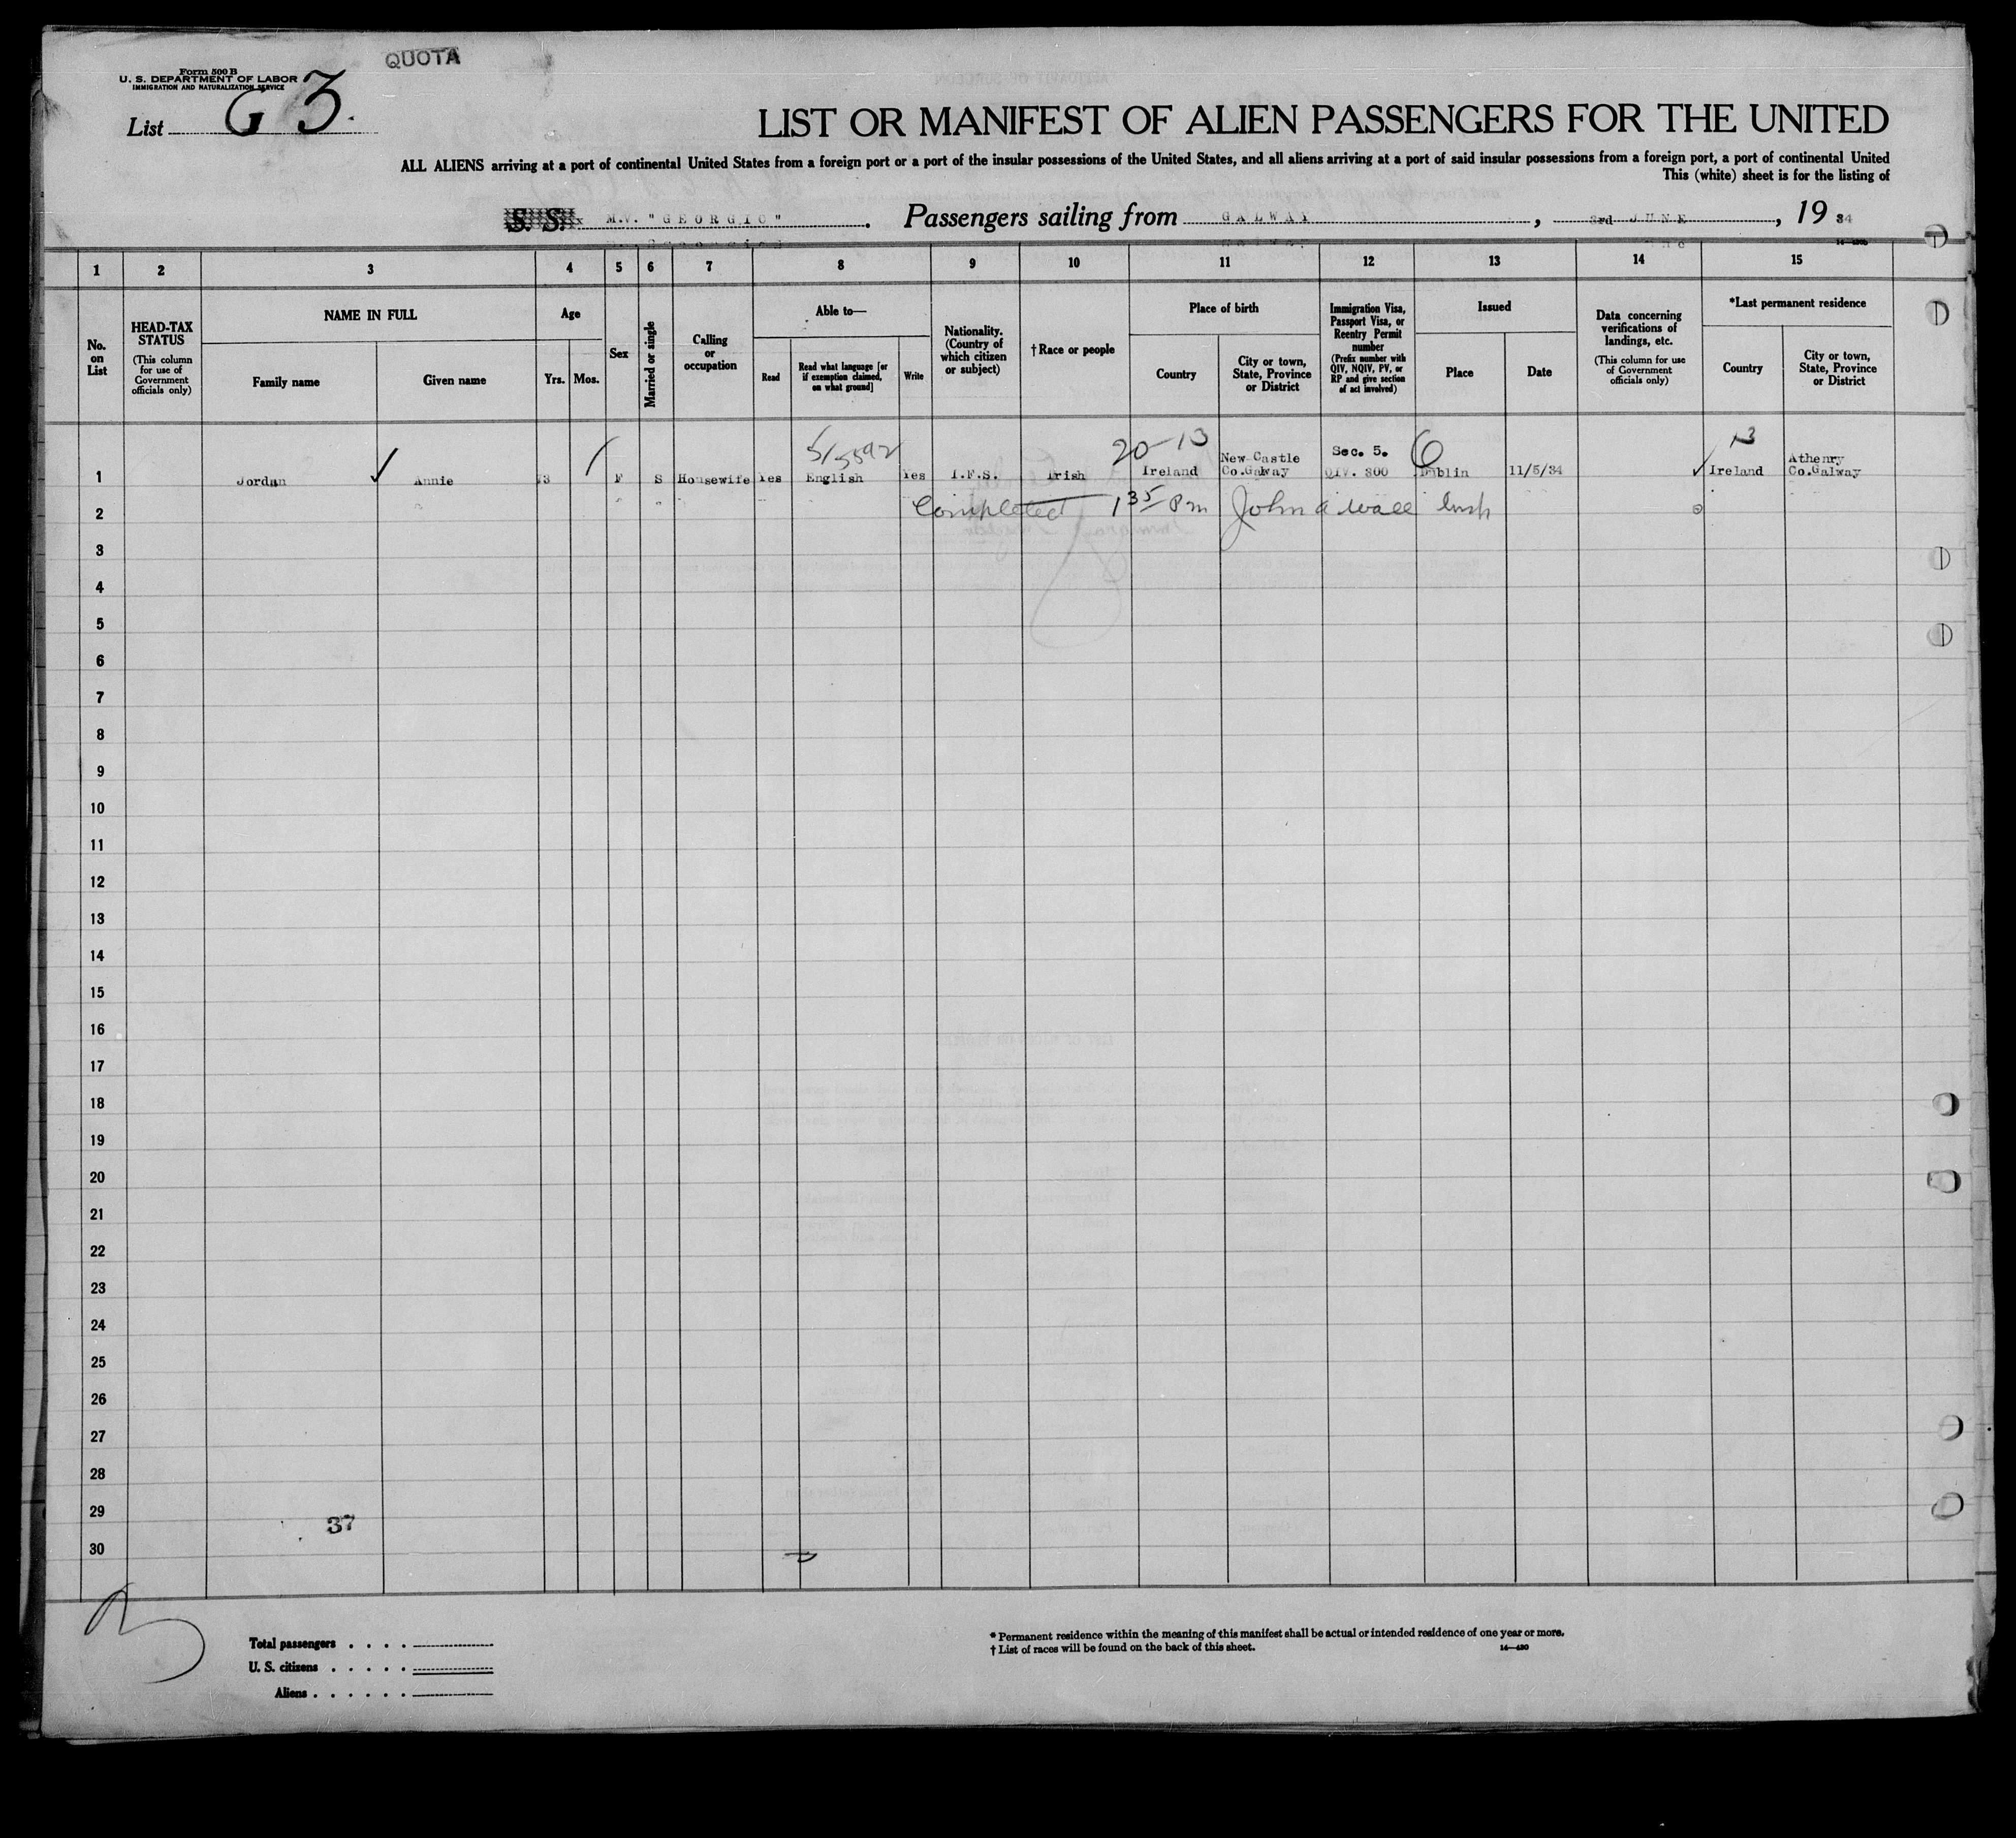 QUOTA
Form 500 B
U. S. DEPARTMENT OF LABOR
IMMIGRATION AND NATURALIZATION SERVICE
List G 3.
LIST OR MANIFEST OF ALIEN PASSENGERS FOR THE UNITED
ALL ALIENS arriving at a port of continental United States from a foreign port or a port of the insular possessions of the United States, and all aliens arriving at a port of said insular possessions from a foreign port, a port of continental United
This (white) sheet is for the listing of
S. S. M.V. "GEORGIC". Passengers sailing from GALWAY, 3rd JUNE, 19 34
1 2 3 4 5 6 7 8 9 10 11 12 13 14 15
No. on List
HEAD-TAX STATUS
(This column for use of Government officials only)
NAME IN FULL
Family name
Given name
Age
Yrs.
Mos.
Sex
Married or single
Calling or occupation
Able to—
Read
Read what language [or if exemption claimed, on what ground]
Write
Nationality. (Country of which citizen or subject)
† Race or people
Place of birth
Country
City or town, State, Province or District
Immigration Visa, Passport Visa, or Reentry Permit number
(Prefix number with QIV, NQIV, PV, or RP and give section of act involved)
Issued
Place
Date
Data concerning verifications of landings, etc.
(This column for use of Government officials only)
*Last permanent residence
Country
City or town, State, Province or District
20-13
13
New Castle Sec. 5. 6 Athenry
1 Jordan ✓ Annie F S Housewife Yes English Yes I.F.S. Irish Ireland Co.Galway QIV. 300 Dublin 11/5/34 ✓ Ireland Co.Galway
2 Completed 1 35 Pm John a Wall Insp
3
4
5
6
7
8
9
10
11
12
13
14
15
16
17
18
19
20
21
22
23
24
25
26
27
28
29
37
30
Total passengers . . . .
U. S. citizens . . . . .
Aliens . . . . . .
* Permanent residence within the meaning of this manifest shall be actual or intended residence of one year or more.
† List of races will be found on the back of this sheet.
14—430